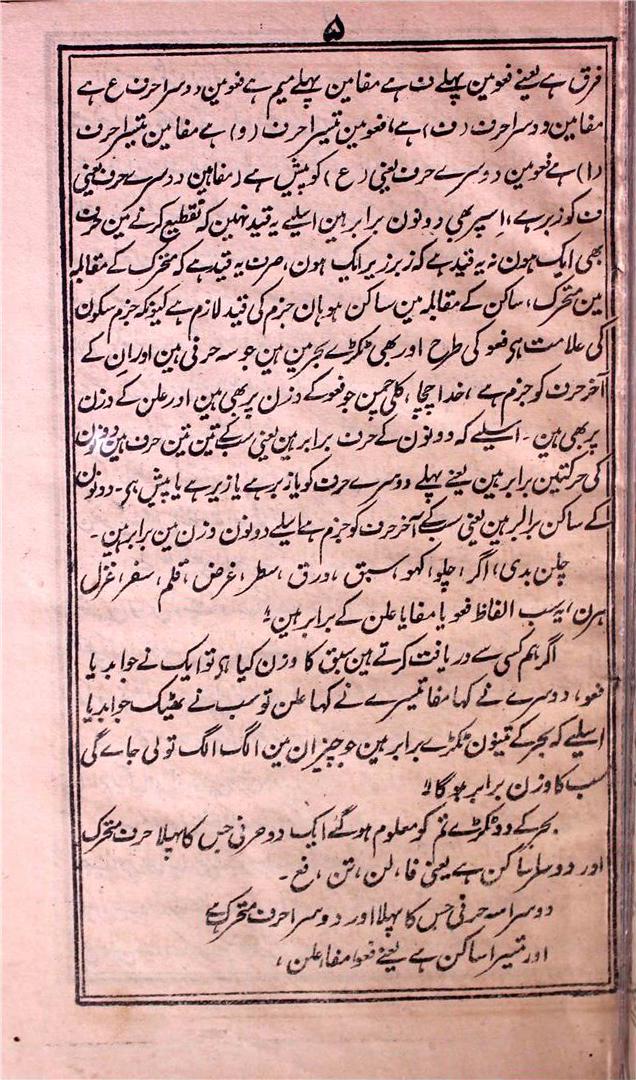 ۵
فرق ہے یعنے فعومین پہلے ف ہے مفامین پہلے میم ہے فعومین دوسرا حرف ع ہے
مفامین دوسرا حرف (ف) ہے، فعومین تیسرا حرف (و) ہے مفامین تیسرا حرف
(ا) ہے فعومین دوسرے حرف یعنی (ع) کو پیش ہے (مفامین دوسرے حرف یعنی
ف کو زبر ہے، اسپر بھی دونون برابر ہین اسلیے یہ قید نہین کہ تقطیع کرنے مین حرف
بھی ایک ہون نہ یہ قید ہے کہ زبر زیر ایک ہون، صرف یہ قید ہے کہ متحرک کے مقابلہ
مین متحرک، ساکن کے مقابلہ مین ساکن ہو ہان جزم کی قید لازم ہے کیونکہ جزم سکون
کی علامت ہی فعو کی طرح اور بھی ٹکڑے بحر مین ہین جو سہ حرفی ہین اور ان کے
آخر حرف کو جزم ہے، خدا چچا، کلی چمن جو فعو کے وزن پر بھی ہین اور علن کے وزن
پر بھی ہین۔ اسلیے کہ دونون کے حرف برابر ہین یعنی سب کے تین تین حرف ہین دونون
کی حرکتین برابر ہین یعنے پہلے دوسرے حرف کو یا زبر ہے یا زیر ہے یا پیش ہی۔ دونون
کے ساکن برابر ہین یعنی سب کے آخر حرف کو جزم ہے اسلیے دونون وزن مین برابر ہین۔
چلن بدی، اگر، چلو، کہو، سبق، ورق، سطر، غرض، قلم، سفر، غزل
ہرن، یہ سب الفاظ فعو یا مفا یا علن کے برابر ہین؛
اگر ہم کسی سے دریافت کرتے ہین سبق کا وزن کیا ہی تو ایک نے جواب دیا
فعو، دوسرے نے کہا مفا تیسرے نے کہا علن تو سب نے ٹھیک جواب دیا
اسلیے کہ بحر کے تینون ٹکڑے برابر ہین جو چیز ان مین الگ الگ تولی جاے گی
سب کا وزن برابر ہوگا؛
بحر کے دو ٹکڑے تم کو معلوم ہو گئے ایک دو حرفی جس کا پہلا حرف متحرک
اور دوسرا ساکن ہے یعنی فا، لن، تن، فع۔
دوسرا سہ حرفی جس کا پہلا اور دوسرا حرف متحرک ہے
اور تیسرا ساکن ہے یعنے فعو، مفا، علن،